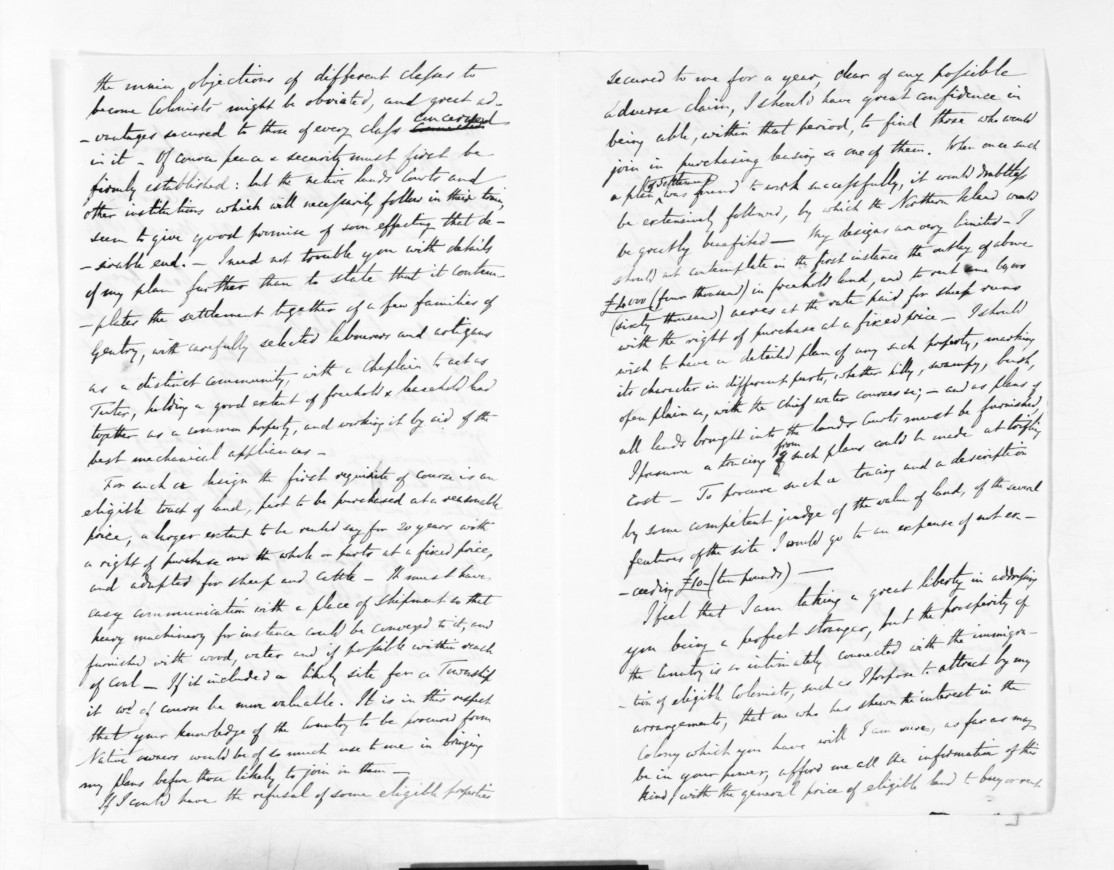 the main objections of different classes to
become Colonists might be obviated, and great ad-
-vantages secured to those of every class concerned
in it - Of course peace & security must first be
firmly established: but the native lands Courts and
other institutions which will necessarily follow in their train,
seem to give good promise of soon effecting that de-
-sirable end. - I need not trouble you with details
of my plan further than to state that it contem-
-plates the settlement together of a few families of
Gentry, with carefully selected labourers and artizans
as a distinct community, with a Chaplain to act as
Tutor, holding a good extent of freehold & leasehold land
together as a common property, and working it by aid of the
best mechanical appliances -
For such a design the first requisite of course is an
eligible tract of land, part to be purchased at a reasonable
price, a larger extent to be rented say for 20 years with
a right of purchase over the whole or parts at a fixed price,
and adapted for sheep and cattle - It must have
easy communication with a place of shipment so that
heavy machinery for instance could be conveyed to it, and
furnished with wood, water and if possible within reach
of coal - If it included a likely site for a Township
it wd of course be more valuable. It is in this respect
that your knowledge of the Country to be procured from
Native owners would be of so much use to me in bringing
my plans before those likely to join in them -
If I could have the refusal of some eligible properties
secured to me for a year, clear of any possible
adverse claim, I should have great confidence in
being able, within that period, to find those who would
join in purchasing leasing &c one of them. When once such
a plan of settlement was found to work successfully, it would doubtless
be extensively followed, by which the Northern Island would
be greatly benefited - My designs are very limited - I
should not contemplate in the first instance the outlay of above
£4000 (four thousand) in freehold land, and to rent some
(sixty thousand) acres at the rate paid for sheep runs
with the right of purchase at a fixed price - I should
wish to have a detailed plan of any such property, marking
its character in different parts, whether hilly, swampy, bush,
open plain &c, with the chief water courses &c; - and as plans of
all lands brought into the lands Courts must be furnished
I presume a tracing from such plans could be made at trifling
cost - To procure such a tracing and a description
by some competent judge of the value of land, of the several
features of the site I would go to an expense of not ex-
-ceeding £10 - (ten pounds) -
I feel that I am taking a great liberty in addressing
you being a perfect stranger, but the prosperity of
the Country is so intimately connected with the immigra-
-tion of eligible Colonists, such as I propose to attract by my
arrangements, that one who has shewn the interest in the
Colony which you have will I am sure, as far as may
be in your power, afford me all the information of this
kind, with the general price of eligible land to buy or rent